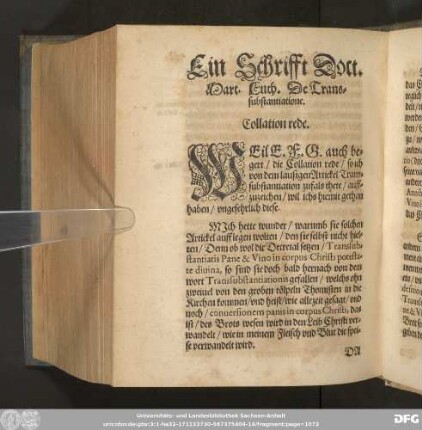 Ein Schrifft Doct.
Mart. Luth. De Trans-
substantiatione.
Collation rede.
WEil E. F. G. auch be-
gert / die Collation rede / so ich
von dem lausigen Artickel Tran-
substantiation zufals thett / auff-
zuzeichen / wil ichs hiemit gethan
haben / vngefehrlich diese.
Mich hette wunder / warumb sie solchen
Artickel auff legen wolten / den sie selbst nicht hiel-
ten / Denn ob wol die Decretal setzen / Transsub-
stantiatis Pane & Vino in corpus Christi potesta-
te diuina, so sind sie doch bald hernach von dem
wort Transubstantiationis gefallen / welchs ohn
zweiuel von den groben tölpeln Thomisten in die
Kirchen kommen / vnd heist / wie alle zeit gesagt / vnd
noch / conuersionem panis in corpus Christi, das
ist / des Brots wesen wird in den Leib Christi ver-
wandelt / wie in meinem Fleisch vnd Blut die spei-
se verwandelt wird.
DA
Universitäts- und Landesbibliothek Sachsen-Anhalt
DFG